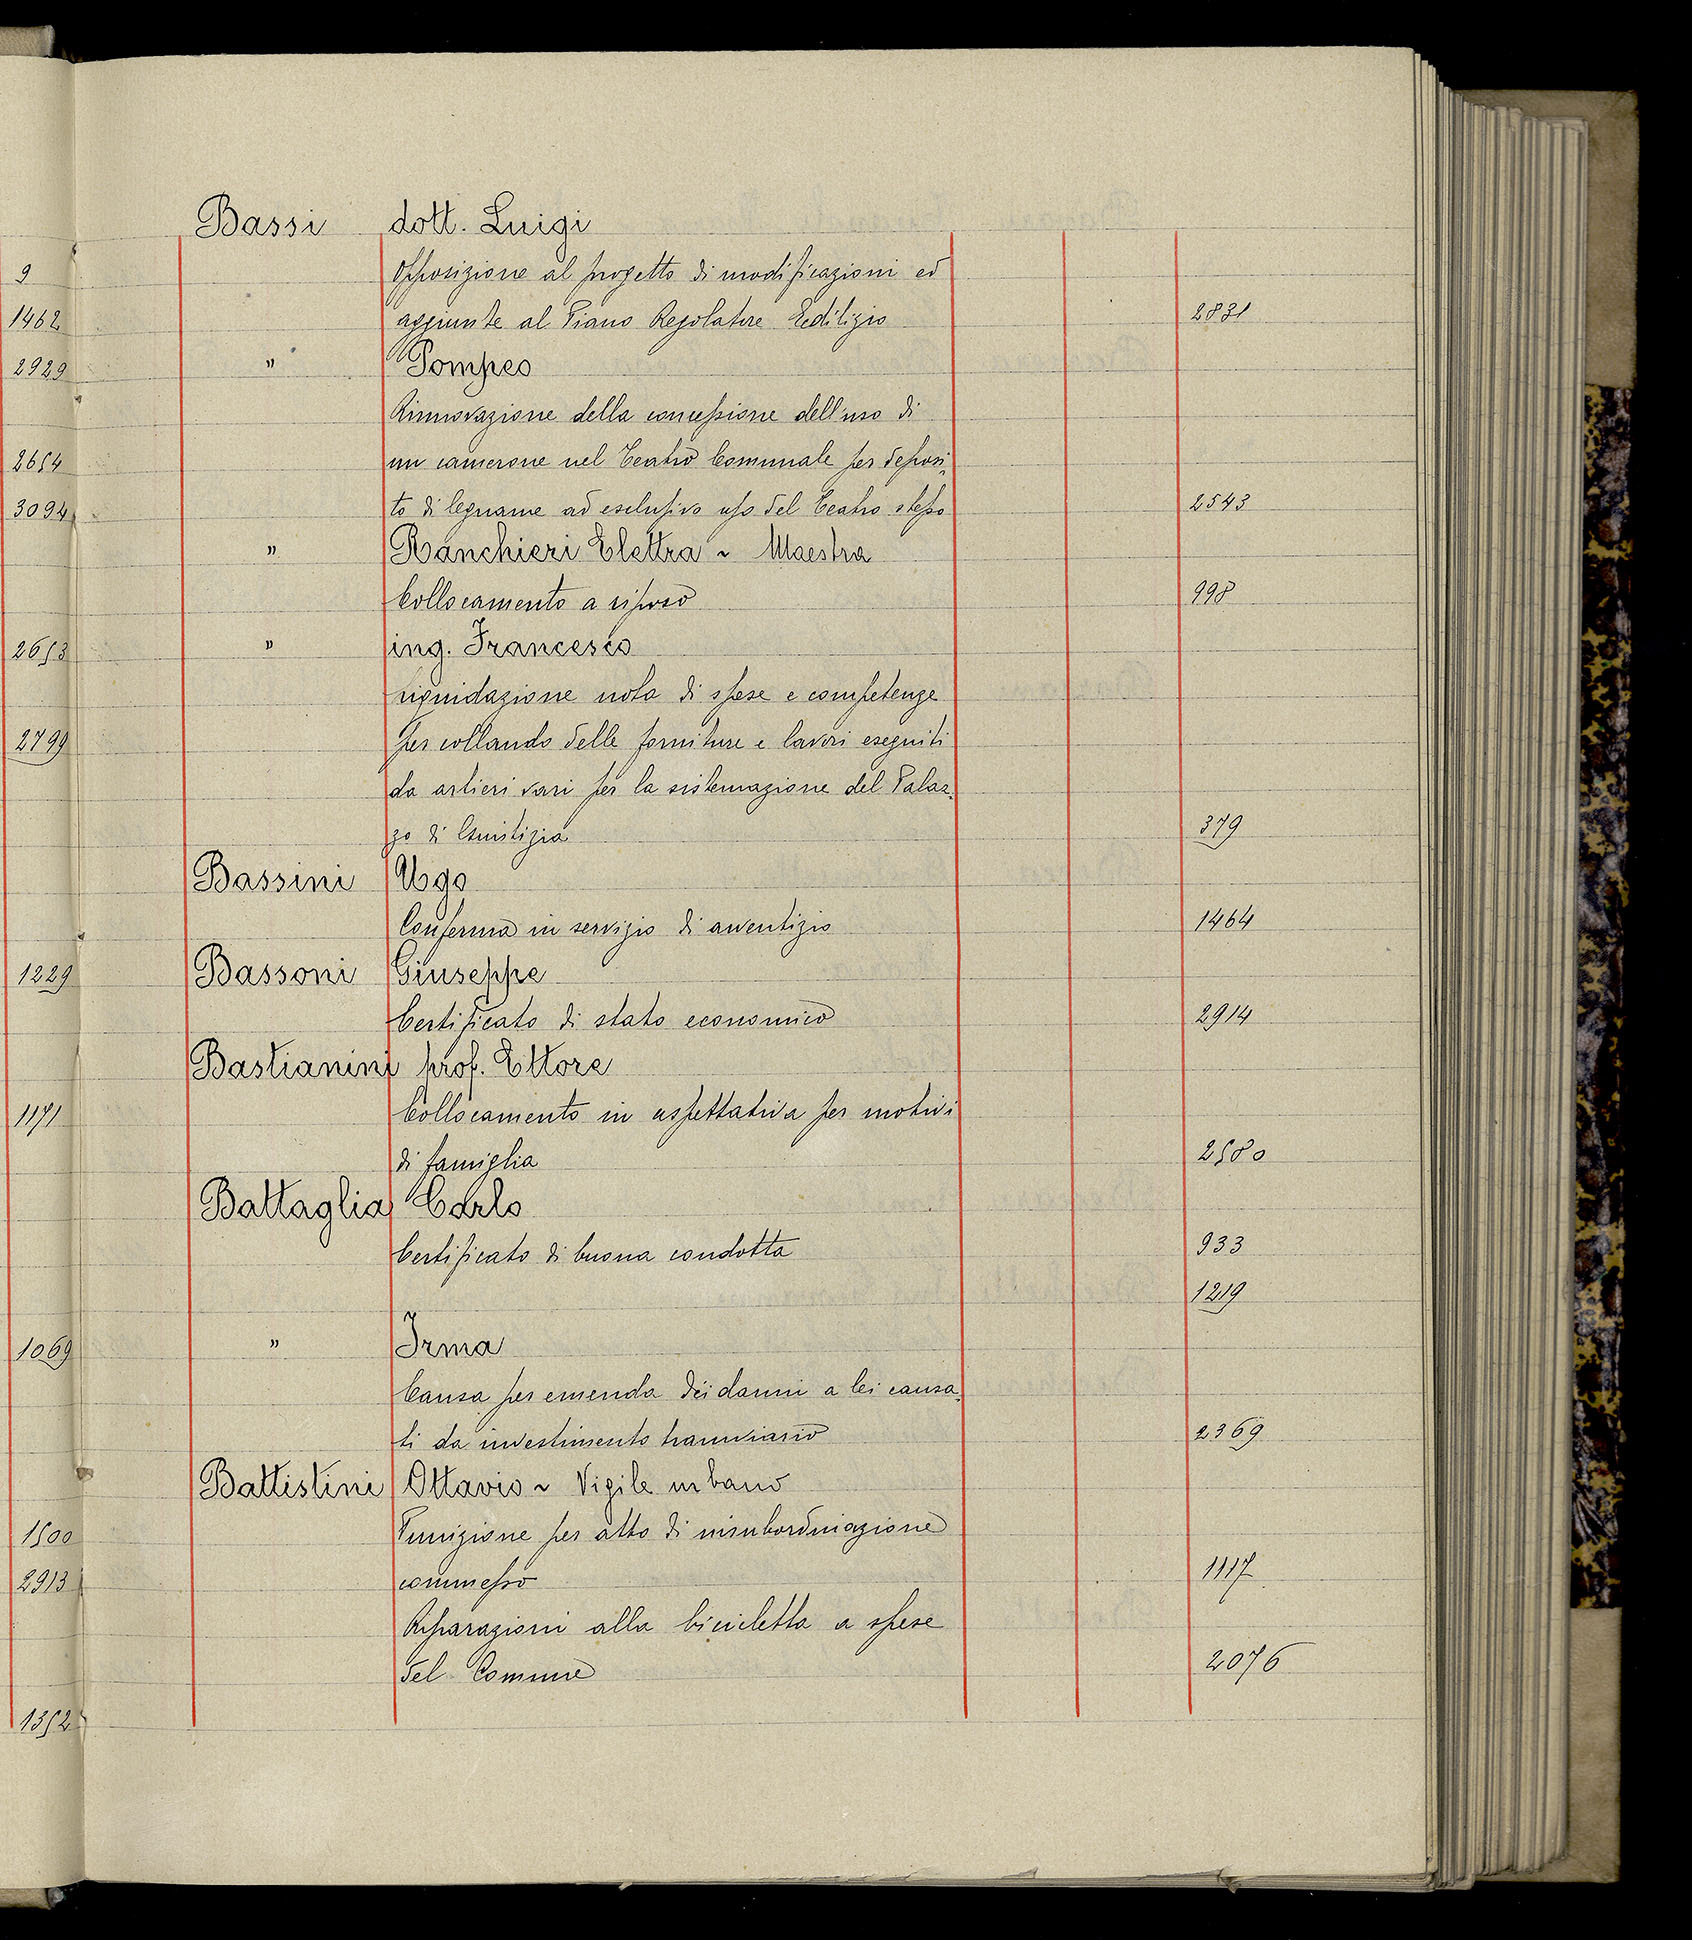 Bassi dott. Luigi
9 Opposizione al progetto di modificazioni ed
1462 aggiunte al Piano Regolatore Edilizio 2831
2929 " Pompeo
Rinnovazione della concessione dell'uso di
2654 un camerone nel Teatro Comunale per deposi-
3094 to di legname ad esclusivo uso del Teatro stesso 2543
" Ranchieri Elettra ~ Maestra
Collocamento a riposo 998
2653 " ing. Francesco
Liquidazione nota di spese e competenze
2799 per collaudo delle forniture e lavori eseguiti
da artieri vari per la sistemazione del Palaz-
zo di Giustizia 379
Bassini Ugo
Conferma in servizio di avventizio 1464
1229 Bassoni Giuseppe
Certificato di stato economico 2914
Bastianini prof. Ettore
1171 Collocamento in aspettativa per motivi
di famiglia 2580
Battaglia Carlo
Certificato di buona condotta 933
1219
1069 " Irma
Causa per emenda dei danni a lei causa-
ti da investimento tranviario 2369
Battistini Ottavio ~ Vigile urbano
1500 Punizione per atto di insubordinazione
2913 commesso 1117
Riparazioni alla bicicletta a spese
del Comune 2076
1352